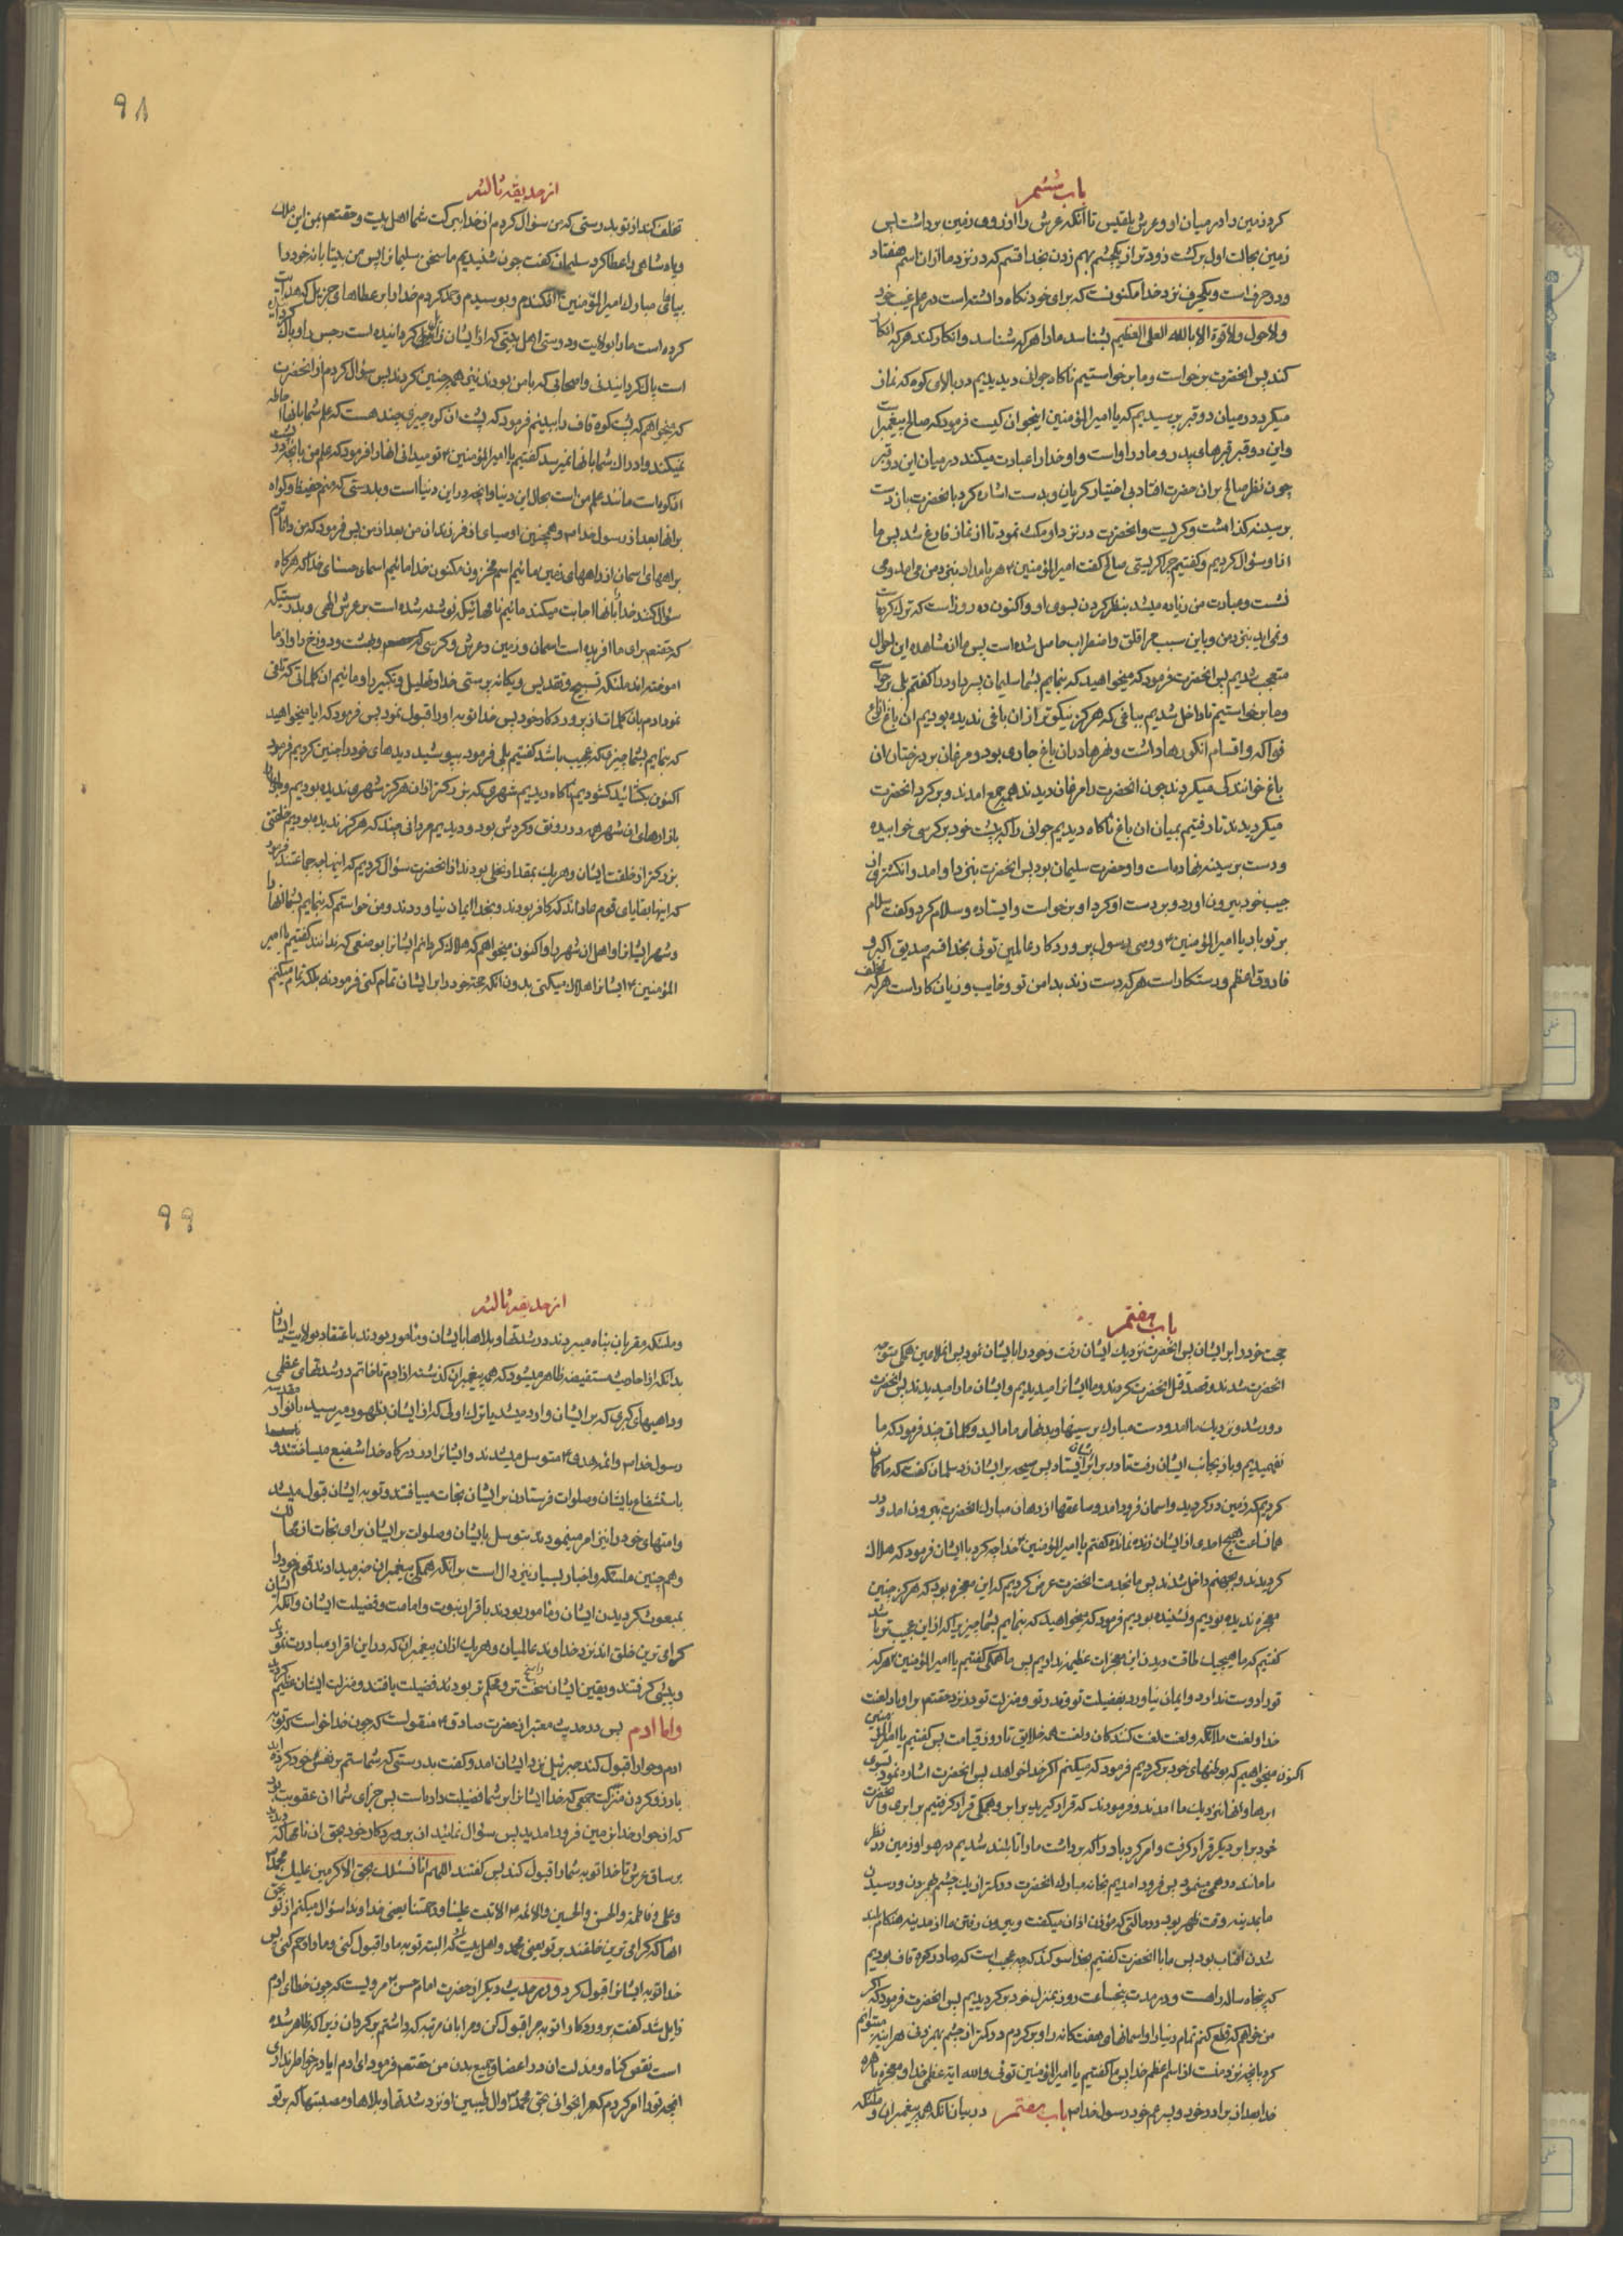 باب ششم
کرد زمین را در میان او و عرش بلقیس تا آنکه عرش را از روی زمین برداشت پس
زمین بحالت اول برگشت زودتر از یکچشم بهم زدن بخدا قسم که در نزد ما از ان اسم هفتاد
ودو حرف است و یکحرف نزد خدا مکنونست که برای خود نکاه داشته است در علم غیب خود
ولا حول ولا قوة الا بالله العلی العظیم بشناسد مارا هر که شناسد و انکار کند هر که انکار
کند پس انحضرت برخواست و ما برخواستیم ناکاه جوانی دیدیم در بالای کوه که نماز
میکرد در میان دو قبر پرسیدیم که یا امیر المؤمنین اینجوان کیست فرمود که صالح پیغمبر است
واین دو قبر قبرهای پدر و مادر اواست و او خدا را عبادت میکند در میان این دو قبر
چون نظر صالح بران حضرت افتاد بی اختیار کریان و بدست اشاره کرد بانحضرت باز دست
بر سینه گذاشت و کریست و انحضرت در نزد او مکث نمود تا از نماز فارغ شد پس ما
از او سؤال کردیم و کفتیم چرا کریستی صالح کفت امیر المؤمنین ۴ هر بامداد بنزد من می امد و می
نشست و عبادت من زیاده میشد بنظر کردن بسوی او و اکنون ده روز است که ترک کرده است
و نمی اید بنزد من و باین سبب مرا قلق و اضطراب حاصل شده است پس ما از مشاهده این احوال
متعجب شدیم پس انحضرت فرمود که میخواهید که بنمایم بشما سلیمان پسر داود را کفتم بلی برخواست
وما برخواستیم تا داخل شدیم بباغی که هرکز نیکوتر از ان باغی ندیده بودیم ان باغ انواع
فواکه و اقسام انکورها داشت و نهرها در ان باغ جاری بود و مرغان بر درختان ان
باغ خوانندکی میکردند چون انحضرت را مرغان دیدند همه جمع امدند و بر کرد انحضرت
میکردیدند تا رفتیم بمیان ان باغ ناکاه دیدیم جوانی را که بر پشت خود بر کرسی خوابیده
و دست بر سینه نهاده است و او حضرت سلیمان بود پس انحضرت بنزد او امد و انکشتری از
جیب خود بیرون اورد و بر دست او کرد او برخواست و ایستاده و سلام کرد و کفت سلام
بر تو باد یا امیر المؤمنین ۴ و وصی رسول پروردکار عالمین توئی بخدا قسم صدیق اکبر و
فاروق اعظم و رستکار است هر که دست زند بدامن تو و خایب و زیان کار است هر که تخلف
از حدیقه ثالثه
۹۸
تخلف کند از تو بدرستی که من سؤال کردم از خدا ببرکت شما اهل بیت و حقتعم بمن این ملک
و پادشاهی را عطا کرد سلیمان کفت چون شنیدیم ما سخن سلیمانرا پس من بیتابانه خود را
بپای مبارک امیر المؤمنین ۴ افکندم و بوسیدم و حمد کردم خدا را بر عطاهای جزیل که هدایت
کرده است مارا بولایت و دوستی اهل بیتی که از ایشان زایل کردانیده است رجس را و پاک کرده
است پاک کردانیدنی و اصحابی که با من بودند نیز همه چنین کردند پس سؤال کردم از انحضرت
که میخواهم که پشت کوه قاف را ببینم فرمود که پشت ان کوه چیزی چند هست که علم شما بانها احاطه
نمیکند و ادراک شما بانها نمیرسد کفتیم یا امیر المؤمنین ۴ تو میدانی انها را فرمود که علم من بانچه در پشت
ان کوه است مانند علم من است بحال این دنیا و انچه در این دنیا است و بدرستی که منم حفیظ و کواه
برانها بعد از رسول خدا ص و همچنین اوصیای از فرزندان من بعد از من پس فرمود که من داناترم
براههای اسمان از راههای زمین مائیم اسم مخزون مکنون خدا مائیم اسمای حسنای خدا که هرکاه
سؤال کنند خدا را بانها اجابت میکند مائیم نامهائیکه نوشته شده است بر عرش الهی و بدرستیکه
که حقتعم برای ما افریده است اسمان و زمین و عرش و کرسی و بهشت و دوزخ را و از ما
اموخته اند ملئکه تسبیح و تقدیس و یکانه پرستی خدا و تهلیل و تکبیر را و مائیم ان کلماتی که تلقی
نمود ادم بان کلمات از پروردکار خود پس خدا توبه او را قبول نمود پس فرمود که ایا میخواهید
که بنمایم بشما چیزی که عجیب باشد کفتیم بلی فرمود بپوشید دیدهای خود را چنین کردیم فرمود
اکنون بکشائید کشودیم ناکاه دیدیم شهری که بزرکتر از ان هرکز شهری ندیده بودیم
بازارهای ان شهر همه در رونق و کردش بود و دیدیم مردانی چند که هرکز ندیده بودیم خلقتی
بزرکتر از خلقت ایشان و هر یک بمقدار نخلی بودند از انحضرت سؤال کردیم که اینها چه جماعتند فرمود
که اینها بقایای قوم عاد اند که کافر بودند و بخدا ایمان نیاوردند و من خواستم که بنمایم بشما انها را
و شهر ایشانرا و اهل ان شهر را و اکنون میخواهم که هلاک کردانم ایشانرا بوضعی که ندانند کفتیم یا امیر
المؤمنین ۴ ایشانرا هلاک میکنی بدون انکه حجة خود را بر ایشان تمام کنی فرمود نه بلکه تمام میکنم
باب هفتم
حجت خود را بر ایشان پس انحضرت نزدیک ایشان رفت و خود را بایشان نمود پس انملاعین همکی متوجه
انحضرت شدند و قصد قتل انحضرت کردند و ما ایشانرا میدیدیم و ایشان مارا نمیدیدند پس انحضرت
دور شد و نزدیک ما امد و دست مبارک بر سینها و بدنهای ما مالید و کلماتی چند فرمود که ما
نفهمیدیم و باز بجانب ایشان رفت تا در برابر ایشان ایستاد پس صیحه بر ایشان زد سلمان کفت که ما کمان
کردیم که زمین در کردید و اسمان فرود امد و صاعقها از دهان مبارک انحضرت بیرون امد و در
همانساعت هیچ احدی از ایشان زنده نماند کفتم یا امیر المؤمنین ۴ خدا چه کرد با ایشان فرمود که هلاک
کردیدند و بجهنم داخل شدند پس ما بخدمت انحضرت عرض کردیم که این معجزه بود که هرکز چنین
معجزه ندیده بودیم و نشنیده بودیم فرمود که میخواهید که بنمایم بشما چیزیرا که از این عجیب تر باشد
کفتیم که ما هیچیک طاقت دیدن این معجزات عظیمه نداریم پس ما همکی کفتیم یا امیر المؤمنین ۴ هر که
تو را دوست ندارد و ایمان نیاورد بفضیلت تو و قدر تو و منزلت تو در نزد حقتعم بر او باد لعنت
خدا و لعنت ملائکه و لعنت لعنت کنندکان و لعنت همه خلایق تا روز قیامت پس کفتیم یا امیر المؤمنین
اکنون میخواهیم که بوطنهای خود برکردیم فرمود که میکنم اکر خدا خواهد پس انحضرت اشاره نمود بسوی
ابرها و انها نزدیک ما امدند و فرمودند که قرار کیرید بر ابر و همکی قرار کرفتیم بر ابری و انحضرت
خود بر ابر دیکر قرار کرفت و امر کرد باد را که برداشت مارا تا بلند شدیم در هوا و زمین در نظر
ما مانند درهمی مینمود پس فرود امدیم بخانه مبارک انحضرت در کمتر از یک چشم بهمزدن و رسیدن
ما بمدینه وقت ظهر بود در حالتی که مؤذن اذان میکفت و بیرون رفتن ما از مدینه هنکام بلند
شدن افتاب بود پس ما با انحضرت کفتیم بخدا سوکند که چه عجیب است که ما در کوه قاف بودیم
که پنجاه ساله راهست و در مدت پنجساعت روز بمنزل خود برکردیدیم پس انحضرت فرمود که اکر
من خواهم که قطع کنم تمام دنیا را و اسمانهای هفت کانه را و برکردم در کمتر از چشم بهمزدن هر اینه میتوانم
کرد بانچه نزد منست از اسم اعظم خدا پس ما کفتیم یا امیر المؤمنین توئی والله ایة عظمی خدا و معجزه باهره
خدا بعد از برادر خود و پسر عم خود رسول خدا ص باب هفتم در بیان انکه همه پیغمبران و ملئکه
از حدیقه ثالثه
۹۹
و ملئکه مقربان پناه میبردند در شدتها و بلاها بایشان و مامور بودند باعتقاد بولایت ایشان
بدانکه از احادیث مستفیضه ظاهر میشود که همه پیغمبران کذشته از ادم تا خاتم در شدتهای عظمی
و داهیهای کبری که بر ایشان وارد میشد یا ترک اولی که از ایشان بظهور میرسید بانوار مقدسه
رسول خدا ص و ائمه هدی ۴ متوسل میشدند و ایشانرا در درکاه خدا شفیع میساختند و
باستشفاع بایشان و صلوات فرستادن بر ایشان نجات مییافتند و توبه ایشان قبول میشد
و امتهای خود را نیز امر مینمودند بتوسل بایشان و صلوات بر ایشان برای نجات از مهالک
و هم چنین ملئکه و اخبار بسیار نیز دال است برانکه همکی پیغمبران خبر میدادند قوم خود را
بمبعوث کردیدن ایشان و مامور بودند باقرار نبوت و امامت و فضیلت ایشان و انکه ایشان
کرامی ترین خلق اند نزد خداوند عالمیان و هر یک از ان پیغمبران که در این اقرار مبادرت نمود
و پیشی کرفتند و یقین ایشان راسخ تر و محکم تر بودند فضیلت یافتند و منزلت ایشان عظیم کردید
واما ادم پس در حدیث معتبر از حضرت صادق ۴ منقولست که چون خدا خواست که توبه
ادم و حوا را قبول کند جبرئیل نزد ایشان امد و کفت بدرستی که شما ستم بر نفس خود کرده اید
بارزو کردن منزلت جمعی که خدا ایشانرا بر شما فضیلت داده است پس جزای شما ان عقوبت بود
که از جوار خدا بزمین فرود امدید پس سؤال نمائید از پروردکار خود بحق ان نامها که دیدید
بر ساق عرش تا خدا توبه شما را قبول کند پس کفتند اللهم انا نسئلک بحق الاکرمین علیک محمد ص
و علی و فاطمة والحسن والحسین والائمه ۴ الا تبت علینا و رحمتنا یعنی خداوندا سؤال میکنم از تو بحق
انها که کرامی ترین خلقند بر تو یعنی محمد و اهل بیتش که البته توبه مارا قبول کنی و مارا رحم کنی پس
خدا توبه ایشانرا قبول کرد و در حدیث دیکر از حضرت امام حسن ۴ مرویست که چون خطای ادم
زایل شد کفت پروردکارا توبه مرا قبول کن و مرا بان مرتبه که داشتم برکردان زیرا که ظاهر شده
است نقص کناه و مذلت ان در اعضا و جمیع بدن من حقتعم فرمود ای ادم ایا در خواطر نداری
انچه تو را امر کردم که مرا بخوانی بحق محمد ص و ال طیبین او نزد شدتها و بلاها و مصیبتها که بر تو